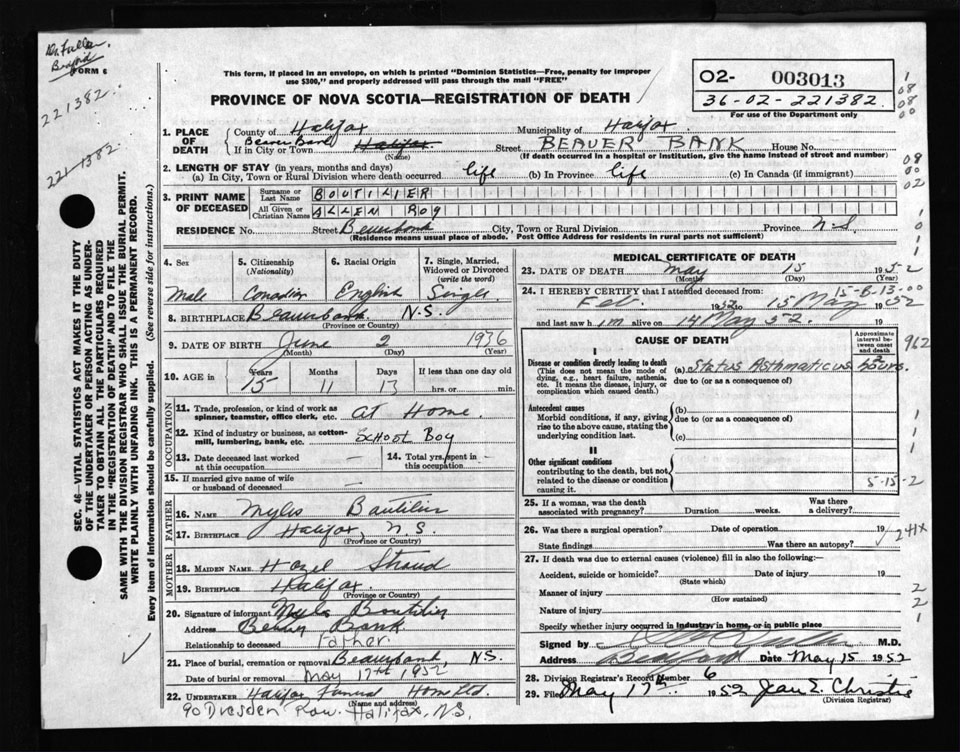 Dr. Fuller
Bedford
FORM 6
221382.
221382.
This form, if placed in an envelope, on which is printed "Dominion Statistics—Free, penalty for improper
use $300," and properly addressed will pass through the mail "FREE"
PROVINCE OF NOVA SCOTIA—REGISTRATION OF DEATH
02- 003013
36-02-221382.
For use of the Department only
1. PLACE OF DEATH { County of Halifax Municipality of Halifax
If in City or Town Beaver Bank Halifax (Name) Street BEAVER BANK House No.
(If death occurred in a hospital or institution, give the name instead of street and number)
2. LENGTH OF STAY (in years, months and days)
(a) In City, Town or Rural Division where death occurred life (b) In Province life (c) In Canada (if immigrant)
3. PRINT NAME OF DECEASED { Surname or Last Name BOUTILIER
All Given or Christian Names ALLEN ROY
RESIDENCE No. Street Beaverbank City, Town or Rural Division Province N-S.
(Residence means usual place of abode. Post Office Address for residents in rural parts not sufficient)
4. Sex Male
5. Citizenship (Nationality) Canadian
6. Racial Origin English
7. Single, Married, Widowed or Divorced (write the word) Single
8. BIRTHPLACE Beaverbank N.S.
(Province or Country)
9. DATE OF BIRTH June 2 1936
(Month) (Day) (Year)
10. AGE in Years Months Days If less than one day old
15 11 13 hrs. or min.
OCCUPATION
11. Trade, profession, or kind of work as spinner, teamster, office clerk, etc. At Home.
12. Kind of industry or business, as cotton-mill, lumbering, bank, etc. School Boy
13. Date deceased last worked at this occupation —
14. Total yrs. spent in this occupation —
15. If married give name of wife or husband of deceased —
FATHER
16. NAME Myles Boutilier
17. BIRTHPLACE Halifax, N.S.
(Province or Country)
MOTHER
18. MAIDEN NAME Hazel Stroud
19. BIRTHPLACE Halifax.
(Province or Country)
20. Signature of informant Myles Boutilier
Address Beaver Bank
Relationship to deceased Father.
21. Place of burial, cremation or removal Beaverbank, N.S.
Date of burial or removal May 17th 1952
22. UNDERTAKER Halifax Funeral Home Ltd.
(Name and address)
90 Dresden Row. Halifax, N.S.
MEDICAL CERTIFICATE OF DEATH
23. DATE OF DEATH May 15 1952
(Month) (Day) (Year)
15-B-13-00
24. I HEREBY CERTIFY that I attended deceased from:
Feb. 1952 to 15 May 1952
and last saw him alive on 14 May 52. 19
CAUSE OF DEATH
Approximate interval between onset and death
I
Disease or condition directly leading to death
(This does not mean the mode of dying, e.g., heart failure, asthenia, etc. It means the disease, injury, or complication which caused death.)
(a) Status Asthmaticus hours.
due to (or as a consequence of)
Antecedent causes
Morbid conditions, if any, giving rise to the above cause, stating the underlying condition last.
(b)
due to (or as a consequence of)
(c)
II
Other significant conditions
contributing to the death, but not related to the disease or condition causing it.
5-15-2
25. If a woman, was the death associated with pregnancy? Duration weeks. Was there a delivery?
26. Was there a surgical operation? Date of operation 19
State findings Was there an autopsy?
241x
27. If death was due to external causes (violence) fill in also the following:—
Accident, suicide or homicide? Date of injury 19
(State which)
Manner of injury
(How sustained)
Nature of injury
Specify whether injury occurred in industry, in home, or in public place
Signed by M.D.
Address Bedford Date May 15 1952
28. Division Registrar's Record Number 6
29. Filed May 17th 1952 Jean E. Christie
(Division Registrar)
962
SEC. 46—VITAL STATISTICS ACT MAKES IT THE DUTY
OF THE UNDERTAKER OR PERSON ACTING AS UNDER-
TAKER TO OBTAIN ALL THE PARTICULARS REQUIRED
IN THE "REGISTRATION OF DEATH" AND TO FILE THE
SAME WITH THE DIVISION REGISTRAR WHO SHALL ISSUE THE BURIAL PERMIT.
WRITE PLAINLY WITH UNFADING INK. THIS IS A PERMANENT RECORD.
Every item of information should be carefully supplied. (See reverse side for instructions.)